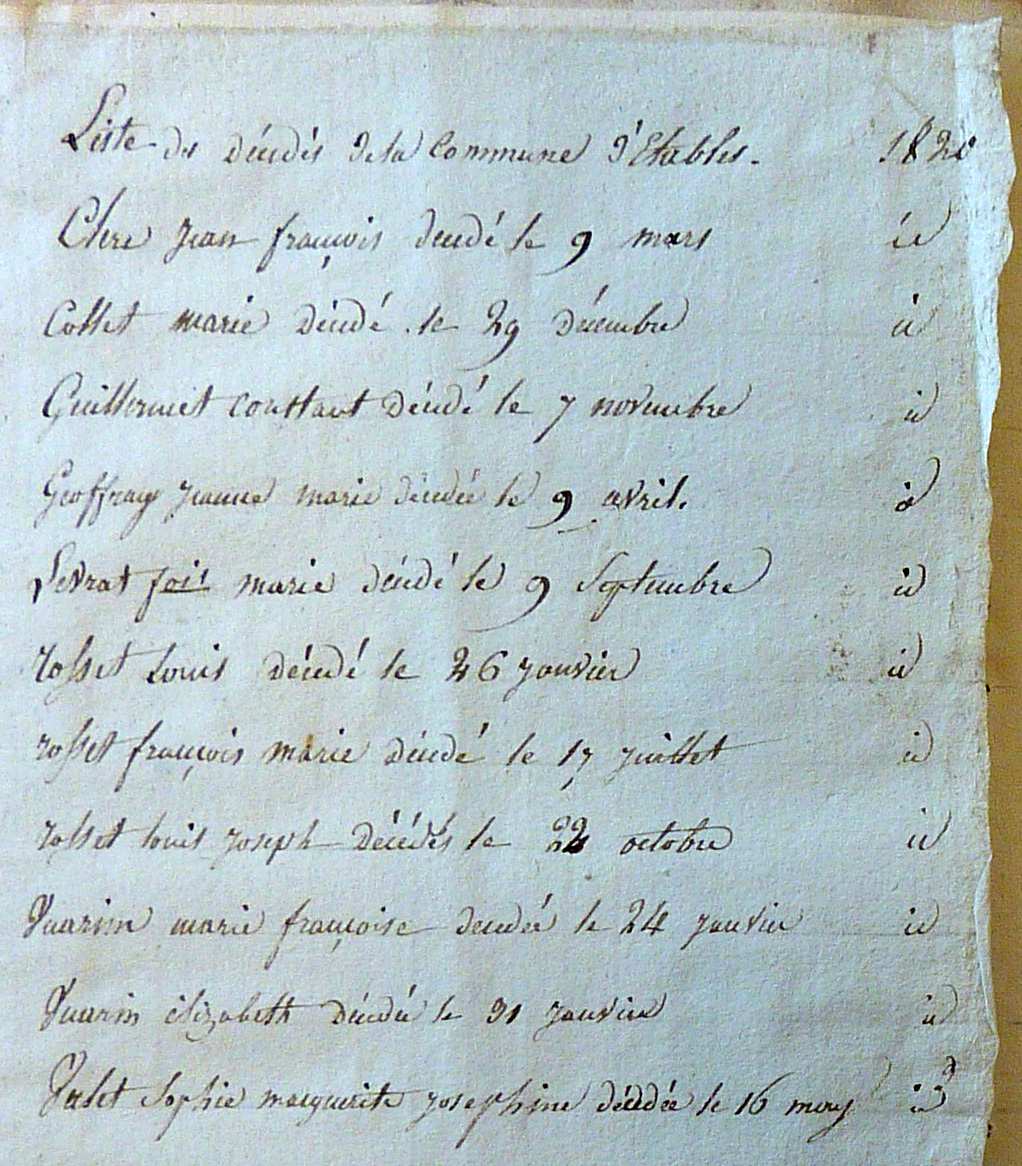 Liste des décédés de la Commune d'Etables. 1820
Clerc jean françois décédé le 9 mars id
Collet marie décédé le 29 décembre id
Guillermet constant décédé le 7 novembre id
Geoffray jeanne marie décédée le 9 avril. id
Levrat marie décédé le 9 Septembre id
rosset Louis décédé le 26 janvier id
rosset françois marie décédé le 17 juillet id
rosset louis joseph décédés le 22 octobre id
Vuarin marie françoise décédée le 24 janvier id
Vuarin élizabeth décédée le 31 janvier id
Sophie marguerite josephine décédée le 16 may id